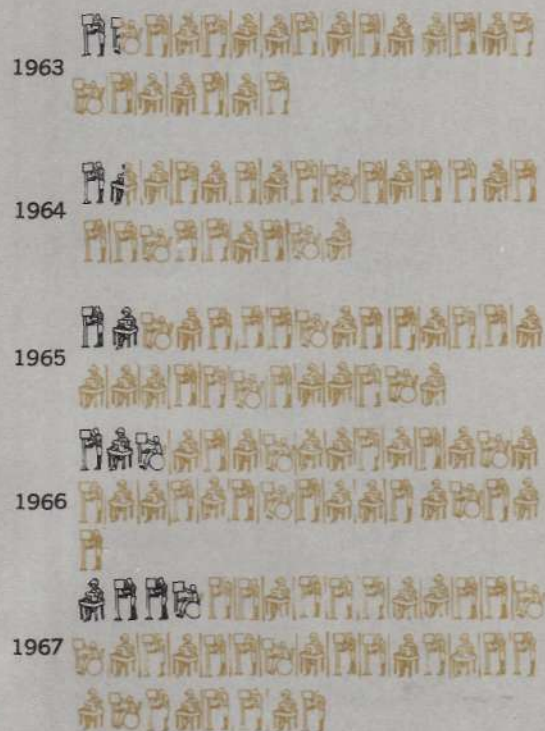 1963
1964
1965
1966
1967